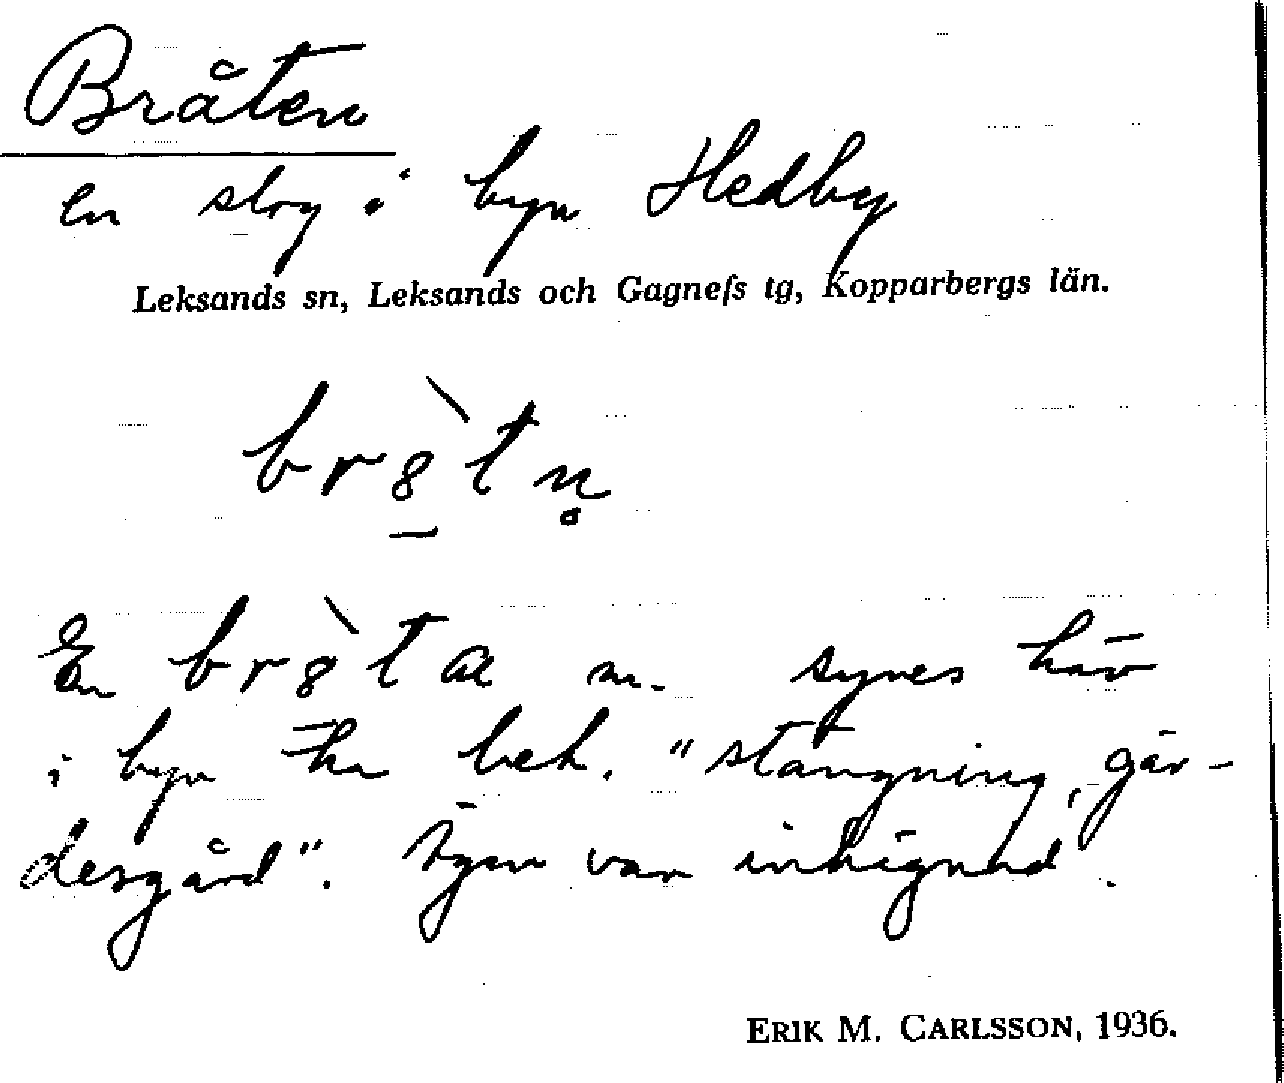 Bråten
en slog i byn Hedby
Leksands sn, Leksands och Gagnefs tg, Kopparbergs län.
br8̱̀tn̥
En br8̀ta m. synes här
i byn ha bet. "stängning, gär-
desgård". Ägan var inhägnad.
ERIK M. CARLSSON, 1936.